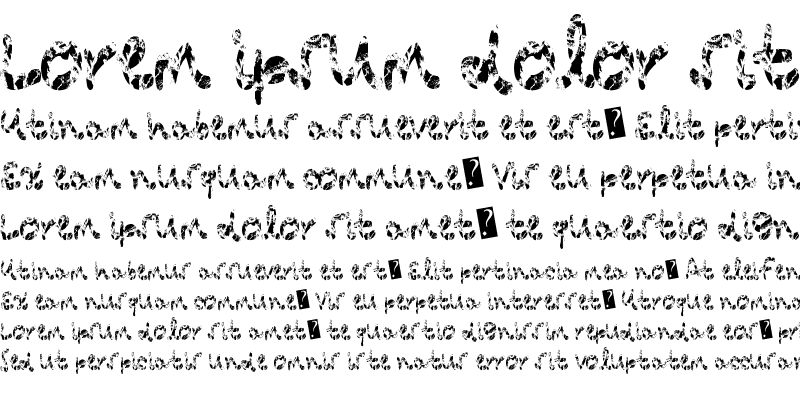 Lorem ipsum dolor sit
Utinam habemus assueverit et est� Elit perti
Ex eam nusquam commune� Vis eu perpetua in
Lorem ipsum dolor sit amet� te quaestio dign
Utinam habemus assueverit et est� Elit pertinacia mea no� At eleifen
Ex eam nusquam commune� Vis eu perpetua interesset� Utroque nomina
Lorem ipsum dolor sit amet� te quaestio dignissim repudiandae eos� pr
Sed ut perspiciatis unde omnis iste natus error sit voluptatem accusan